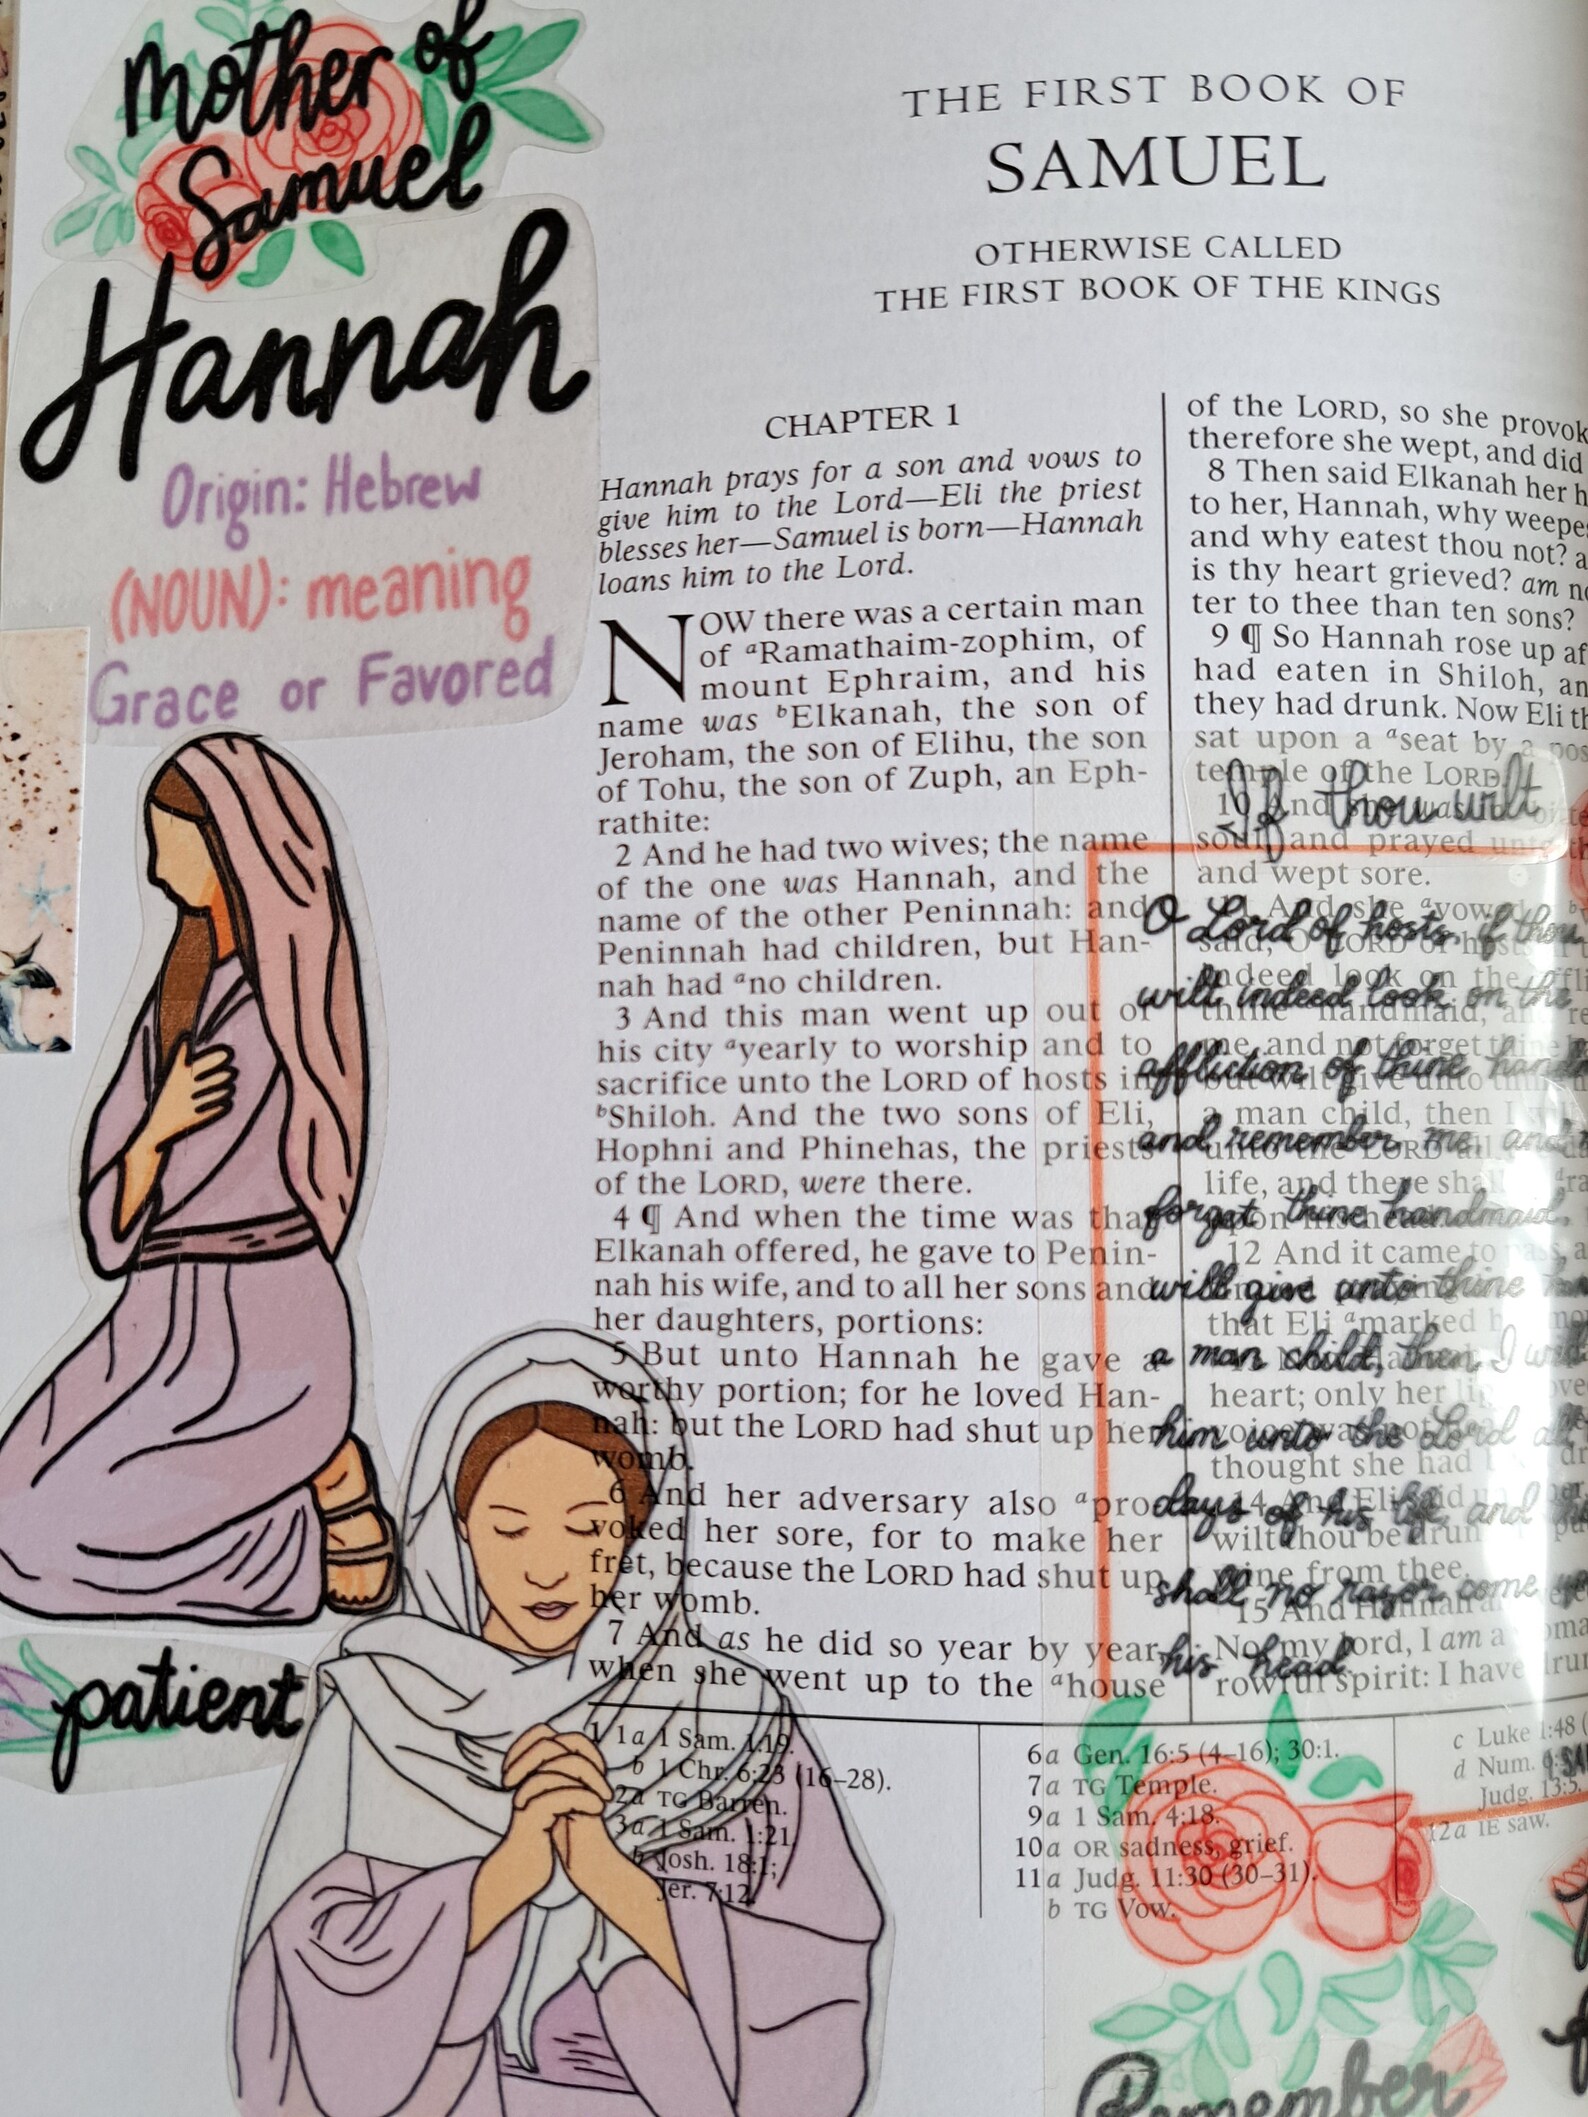 mother of
Samuel
Hannah
Origin: Hebrew
(NOUN): meaning
Grace or Favored
patient
THE FIRST BOOK OF
SAMUEL
OTHERWISE CALLED
THE FIRST BOOK OF THE KINGS
CHAPTER 1
Hannah prays for a son and vows to
give him to the Lord—Eli the priest
blesses her—Samuel is born—Hannah
loans him to the Lord.
NOW there was a certain man
of aRamathaim-zophim, of
mount Ephraim, and his
name was bElkanah, the son of
Jeroham, the son of Elihu, the son
of Tohu, the son of Zuph, an Eph-
rathite:
2 And he had two wives; the name
of the one was Hannah, and the
name of the other Peninnah: and
Peninnah had children, but Han-
nah had ano children.
3 And this man went up out of
his city ayearly to worship and to
sacrifice unto the LORD of hosts in
bShiloh. And the two sons of Eli,
Hophni and Phinehas, the priests
of the LORD, were there.
4 ¶ And when the time was that
Elkanah offered, he gave to Penin-
nah his wife, and to all her sons and
her daughters, portions:
5 But unto Hannah he gave a
worthy portion; for he loved Han-
nah: but the LORD had shut up her
womb.
6 And her adversary also apro-
voked her sore, for to make her
fret, because the LORD had shut up
her womb.
7 And as he did so year by year,
when she went up to the ahouse
of the LORD, so she provok
therefore she wept, and did
8 Then said Elkanah her h
to her, Hannah, why weepes
and why eatest thou not? a
is thy heart grieved? am no
ter to thee than ten sons?
9 ¶ So Hannah rose up af
had eaten in Shiloh, an
they had drunk. Now Eli th
sat upon a aseat by a pos
temple of the LORD.
10 And she was
soul, and prayed unto th
and wept sore.
11 And she avowed
said, O LORD of hosts
indeed look on the
thine handmaid,
me, and not forget thine
but wilt give unto
a man child, then I will
unto the LORD all
life, and there shall
upon his head.
12 And it came to pass, a
that Eli amarked
heart; only her lips
voice was not
thought she had
14 And Eli said
wilt thou be drun
wine from thee.
15 And Hannah
No, my lord, I am a
rowful spirit: I have drun
If thou wilt
O Lord of hosts, if thou
wilt indeed look on the
affliction of thine
and remember me, and
forget thine handmaid,
will give unto thine
a man child, then I will
him unto the Lord all
days of his life, and
shall no razor come
his head.
1 1a 1 Sam. 1:19.
b 1 Chr. 6:23 (16–28).
2a TG Barren.
3a 1 Sam. 1:21.
b Josh. 18:1;
Jer. 7:12.
6a Gen. 16:5 (4–16); 30:1.
7a TG Temple.
9a 1 Sam. 4:18.
10a OR sadness, grief.
11a Judg. 11:30 (30–31).
b TG Vow.
c Luke 1:48
d Num.
Judg. 13:5.
12a IE saw.
Remember